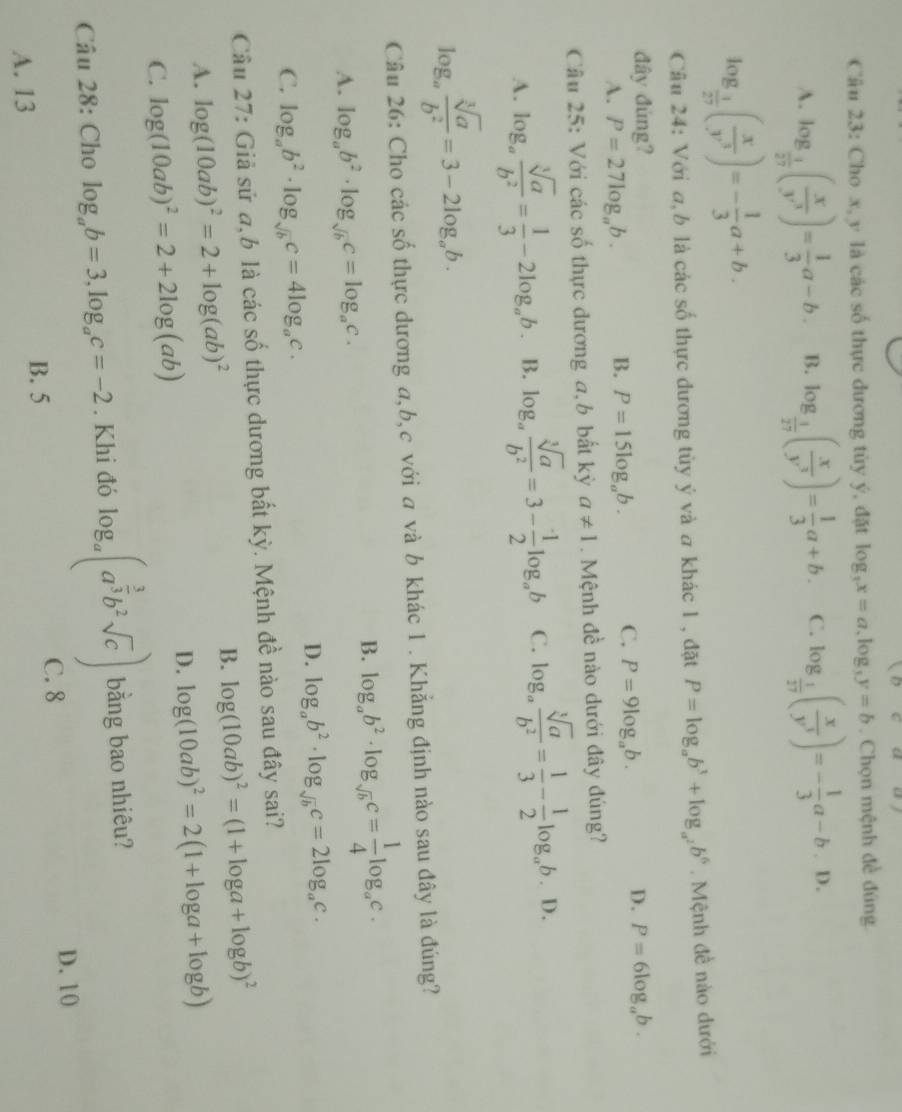 ( b c a b )
Câu 23: Cho x, y là các số thực dương tùy ý, đặt log₃x = a, log₃y = b. Chọn mệnh đề đúng
A. log_{1/27}(x/y³) = 1/3 a − b. B. log_{1/27}(x/y³) = 1/3 a + b. C. log_{1/27}(x/y³) = −1/3 a − b. D.
log_{1/27}(x/y³) = −1/3 a + b.
Câu 24: Với a, b là các số thực dương tùy ý và a khác 1, đặt P = log_a b³ + log_{a²} b⁶. Mệnh đề nào dưới
đây đúng?
A. P = 27log_a b. B. P = 15log_a b. C. P = 9log_a b. D. P = 6log_a b.
Câu 25: Với các số thực dương a, b bất kỳ a ≠ 1. Mệnh đề nào dưới đây đúng?
A. log_a (∛a/b²) = 1/3 − 2log_a b. B. log_a (∛a/b²) = 3 − 1/2 log_a b C. log_a (∛a/b²) = 1/3 − 1/2 log_a b. D.
log_a (∛a/b²) = 3 − 2log_a b.
Câu 26: Cho các số thực dương a, b, c với a và b khác 1. Khẳng định nào sau đây là đúng?
A. log_a b² · log_{√b} c = log_a c. B. log_a b² · log_{√b} c = 1/4 log_a c.
C. log_a b² · log_{√b} c = 4log_a c. D. log_a b² · log_{√b} c = 2log_a c.
Câu 27: Giả sử a, b là các số thực dương bất kỳ. Mệnh đề nào sau đây sai?
A. log(10ab)² = 2 + log(ab)² B. log(10ab)² = (1 + loga + logb)²
C. log(10ab)² = 2 + 2log(ab) D. log(10ab)² = 2(1 + loga + logb)
Câu 28: Cho log_a b = 3, log_a c = −2. Khi đó log_a (a³b^{3/2}√c) bằng bao nhiêu?
A. 13 B. 5 C. 8 D. 10